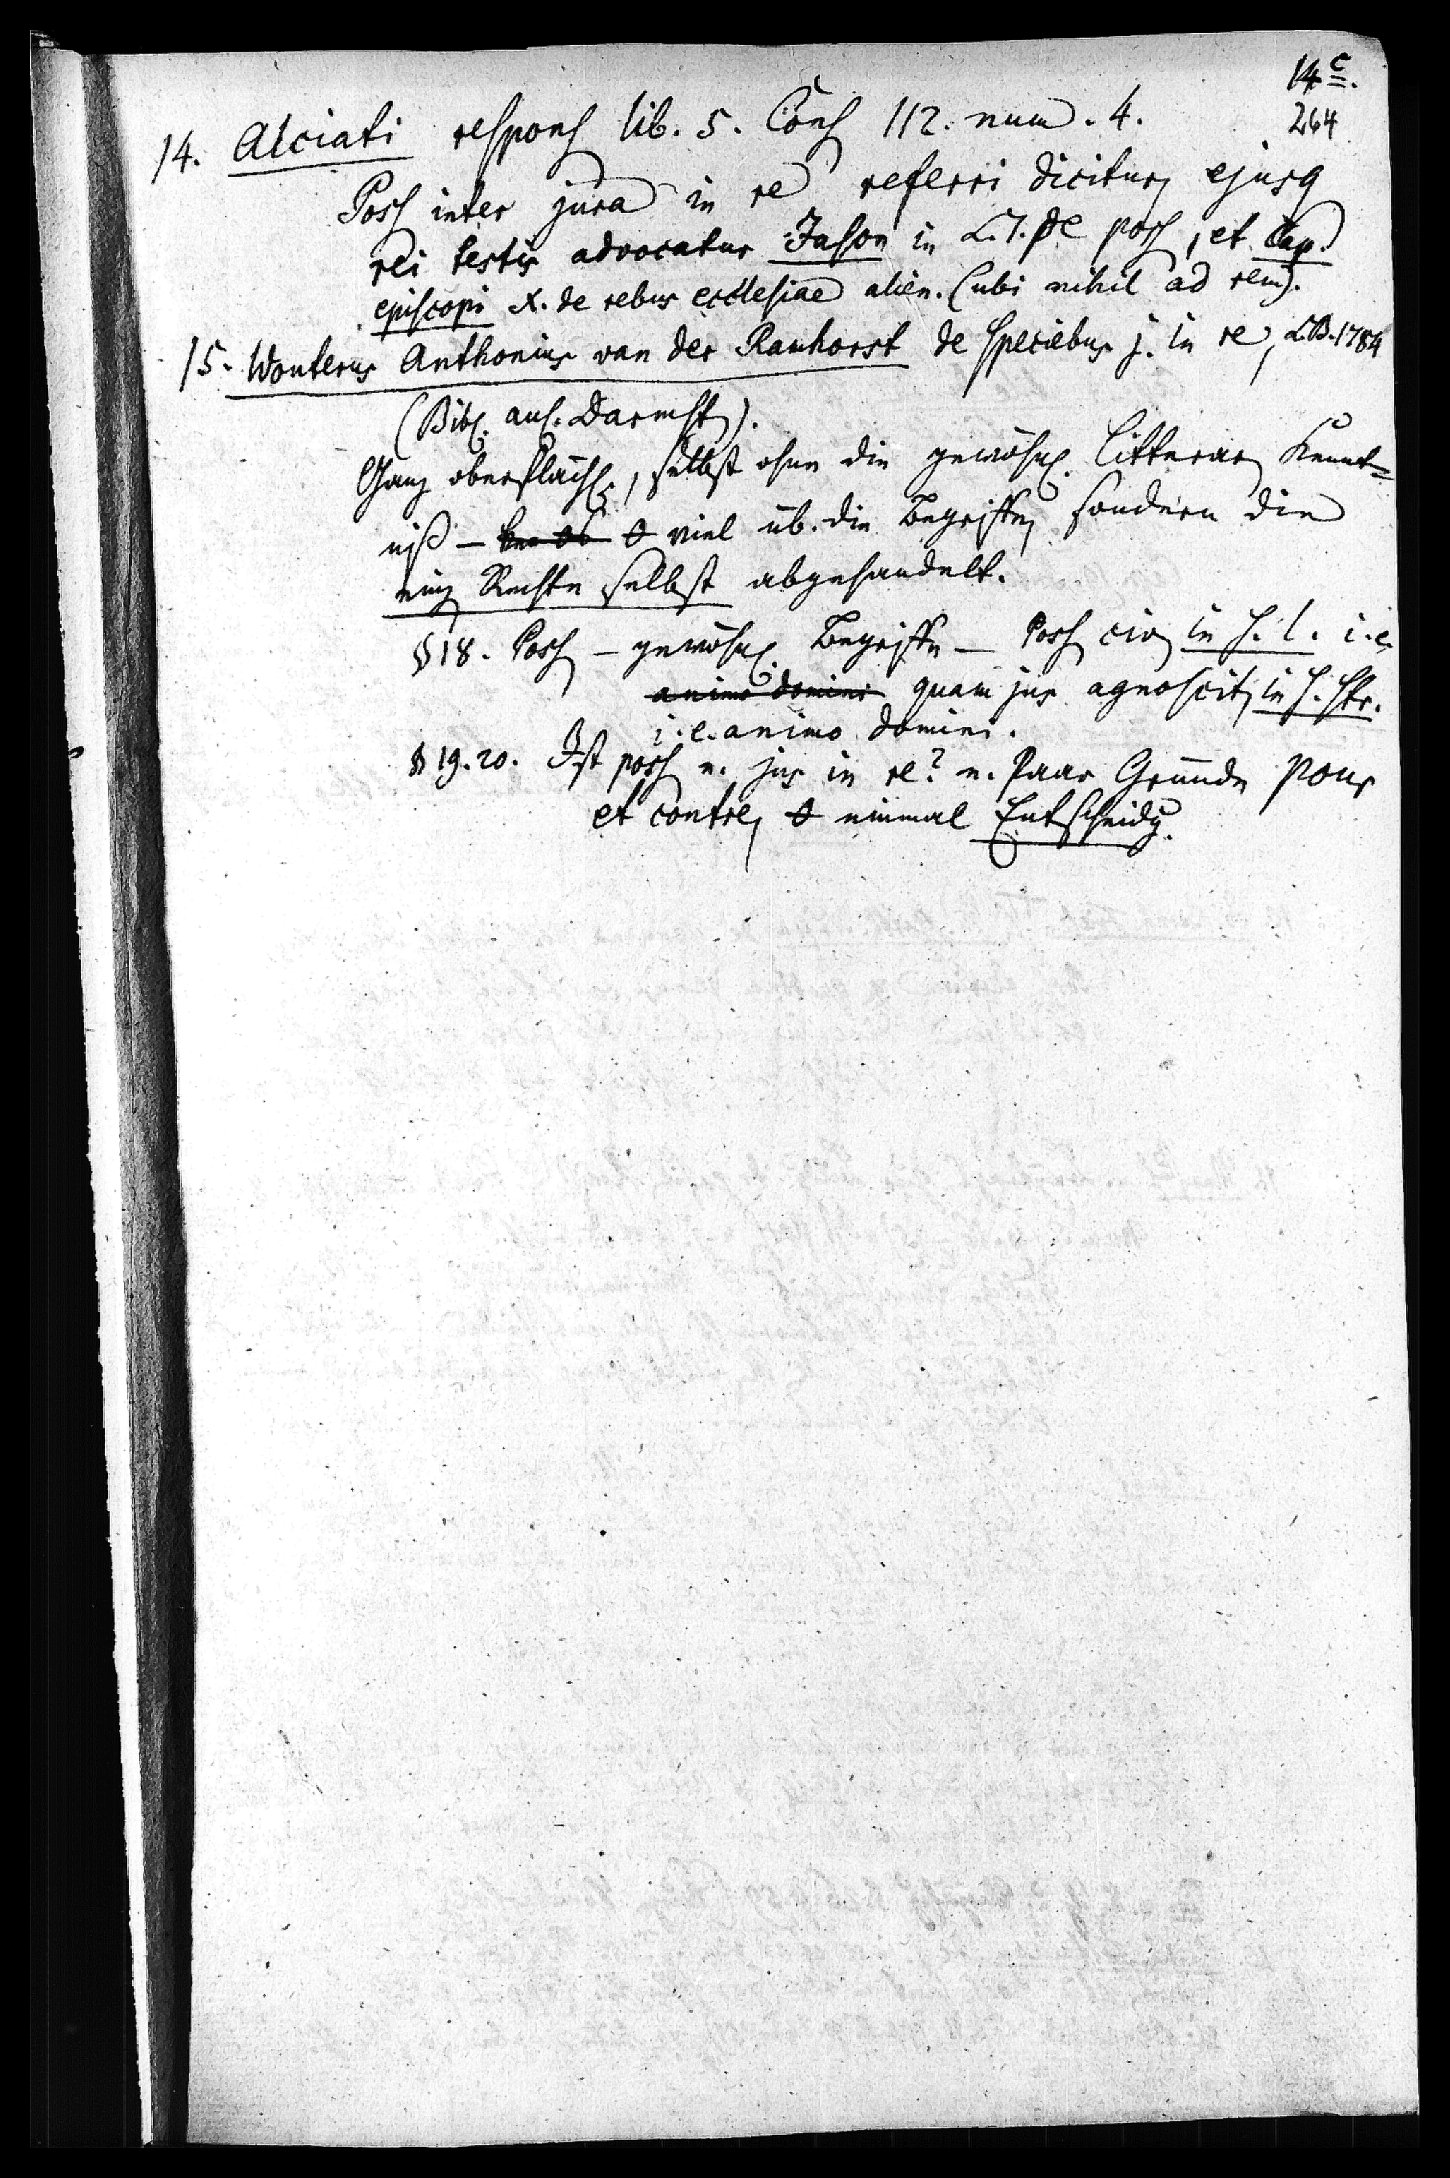 14c.
264
14. Alciati respons lib. 5. Cons 112. num. 4.
Poss inter jura in re referri dicitur, ejusq
rei testis advocatur Jason in L. 1. de poss, et Cap.
episcopi X. de rebus ecclesiae alien. (ubi nihil ad rem).
15. Wouterus Anthonius van der Ramhorst de speciebus j. in re, LB. 1784
(Bibl. auf. Darmst).
Ganz oberflächl., selbst ohne die gewöhnl. litterar Kennt=
niß – viel üb. die Begriffe, sondern die
einz Rechte selbst abgehandelt.
§ 18. Poss – gewöhnl. Begriffe – Poss civ, in s. l. i.e.
animo domini quam jus agnoscit, in s. str.
i.e. animo domini.
§ 19. 20. Ist poss e. jus in re? e. Paar Gründe pour
et contre, einmal Entscheidg.